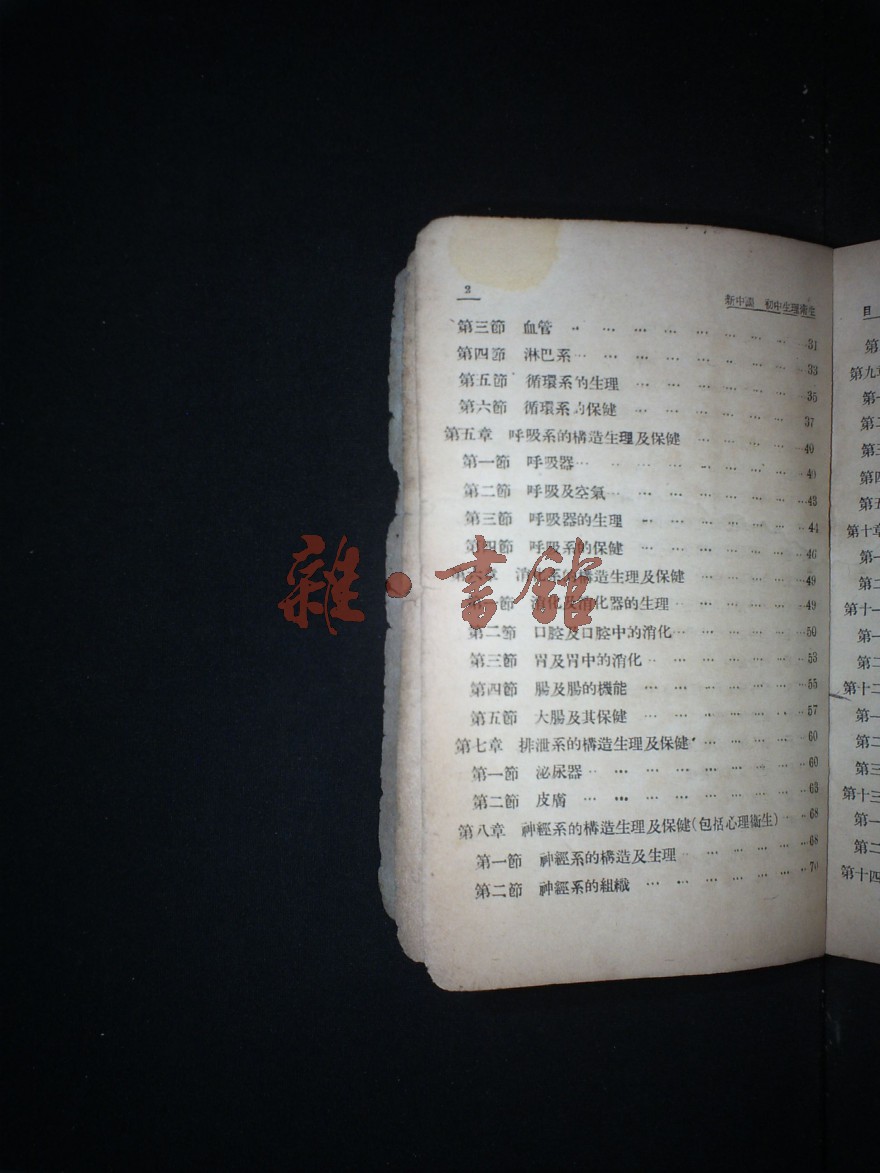 2
新中國 初中生理衛生
第三節 血管 … 31
第四節 淋巴系 … 33
第五節 循環系的生理 … 35
第六節 循環系的保健 … 37
第五章 呼吸系的構造生理及保健 … 40
第一節 呼吸器 … 40
第二節 呼吸及空氣 … 43
第三節 呼吸器的生理 … 44
第四節 呼吸系的保健 … 46
第六章 消化系的構造生理及保健 … 49
第一節 消化及消化器的生理 … 49
第二節 口腔及口腔中的消化 … 50
第三節 胃及胃中的消化 … 53
第四節 腸及腸的機能 … 55
第五節 大腸及其保健 … 57
第七章 排泄系的構造生理及保健 … 60
第一節 泌尿器 … 60
第二節 皮膚 … 63
第八章 神經系的構造生理及保健(包括心理衛生) … 68
第一節 神經系的構造及生理 … 68
第二節 神經系的組織 … 70
雜·書館
目
第
第九章
第一
第二
第三
第四
第五
第十章
第一
第二
第十一
第一
第二
第十二
第一
第二
第三
第十三
第一
第二
第十四